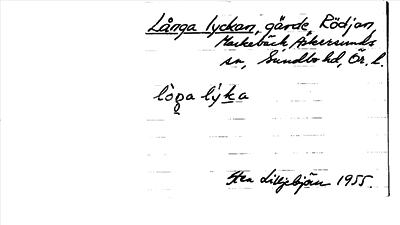 Långa lyckan, gärde, Rödjan,
Markebäck, Askersunds
sn, Sundbo hd, Ör. l.
lò̀ŋa lýka
Lilljebjörn 1955.